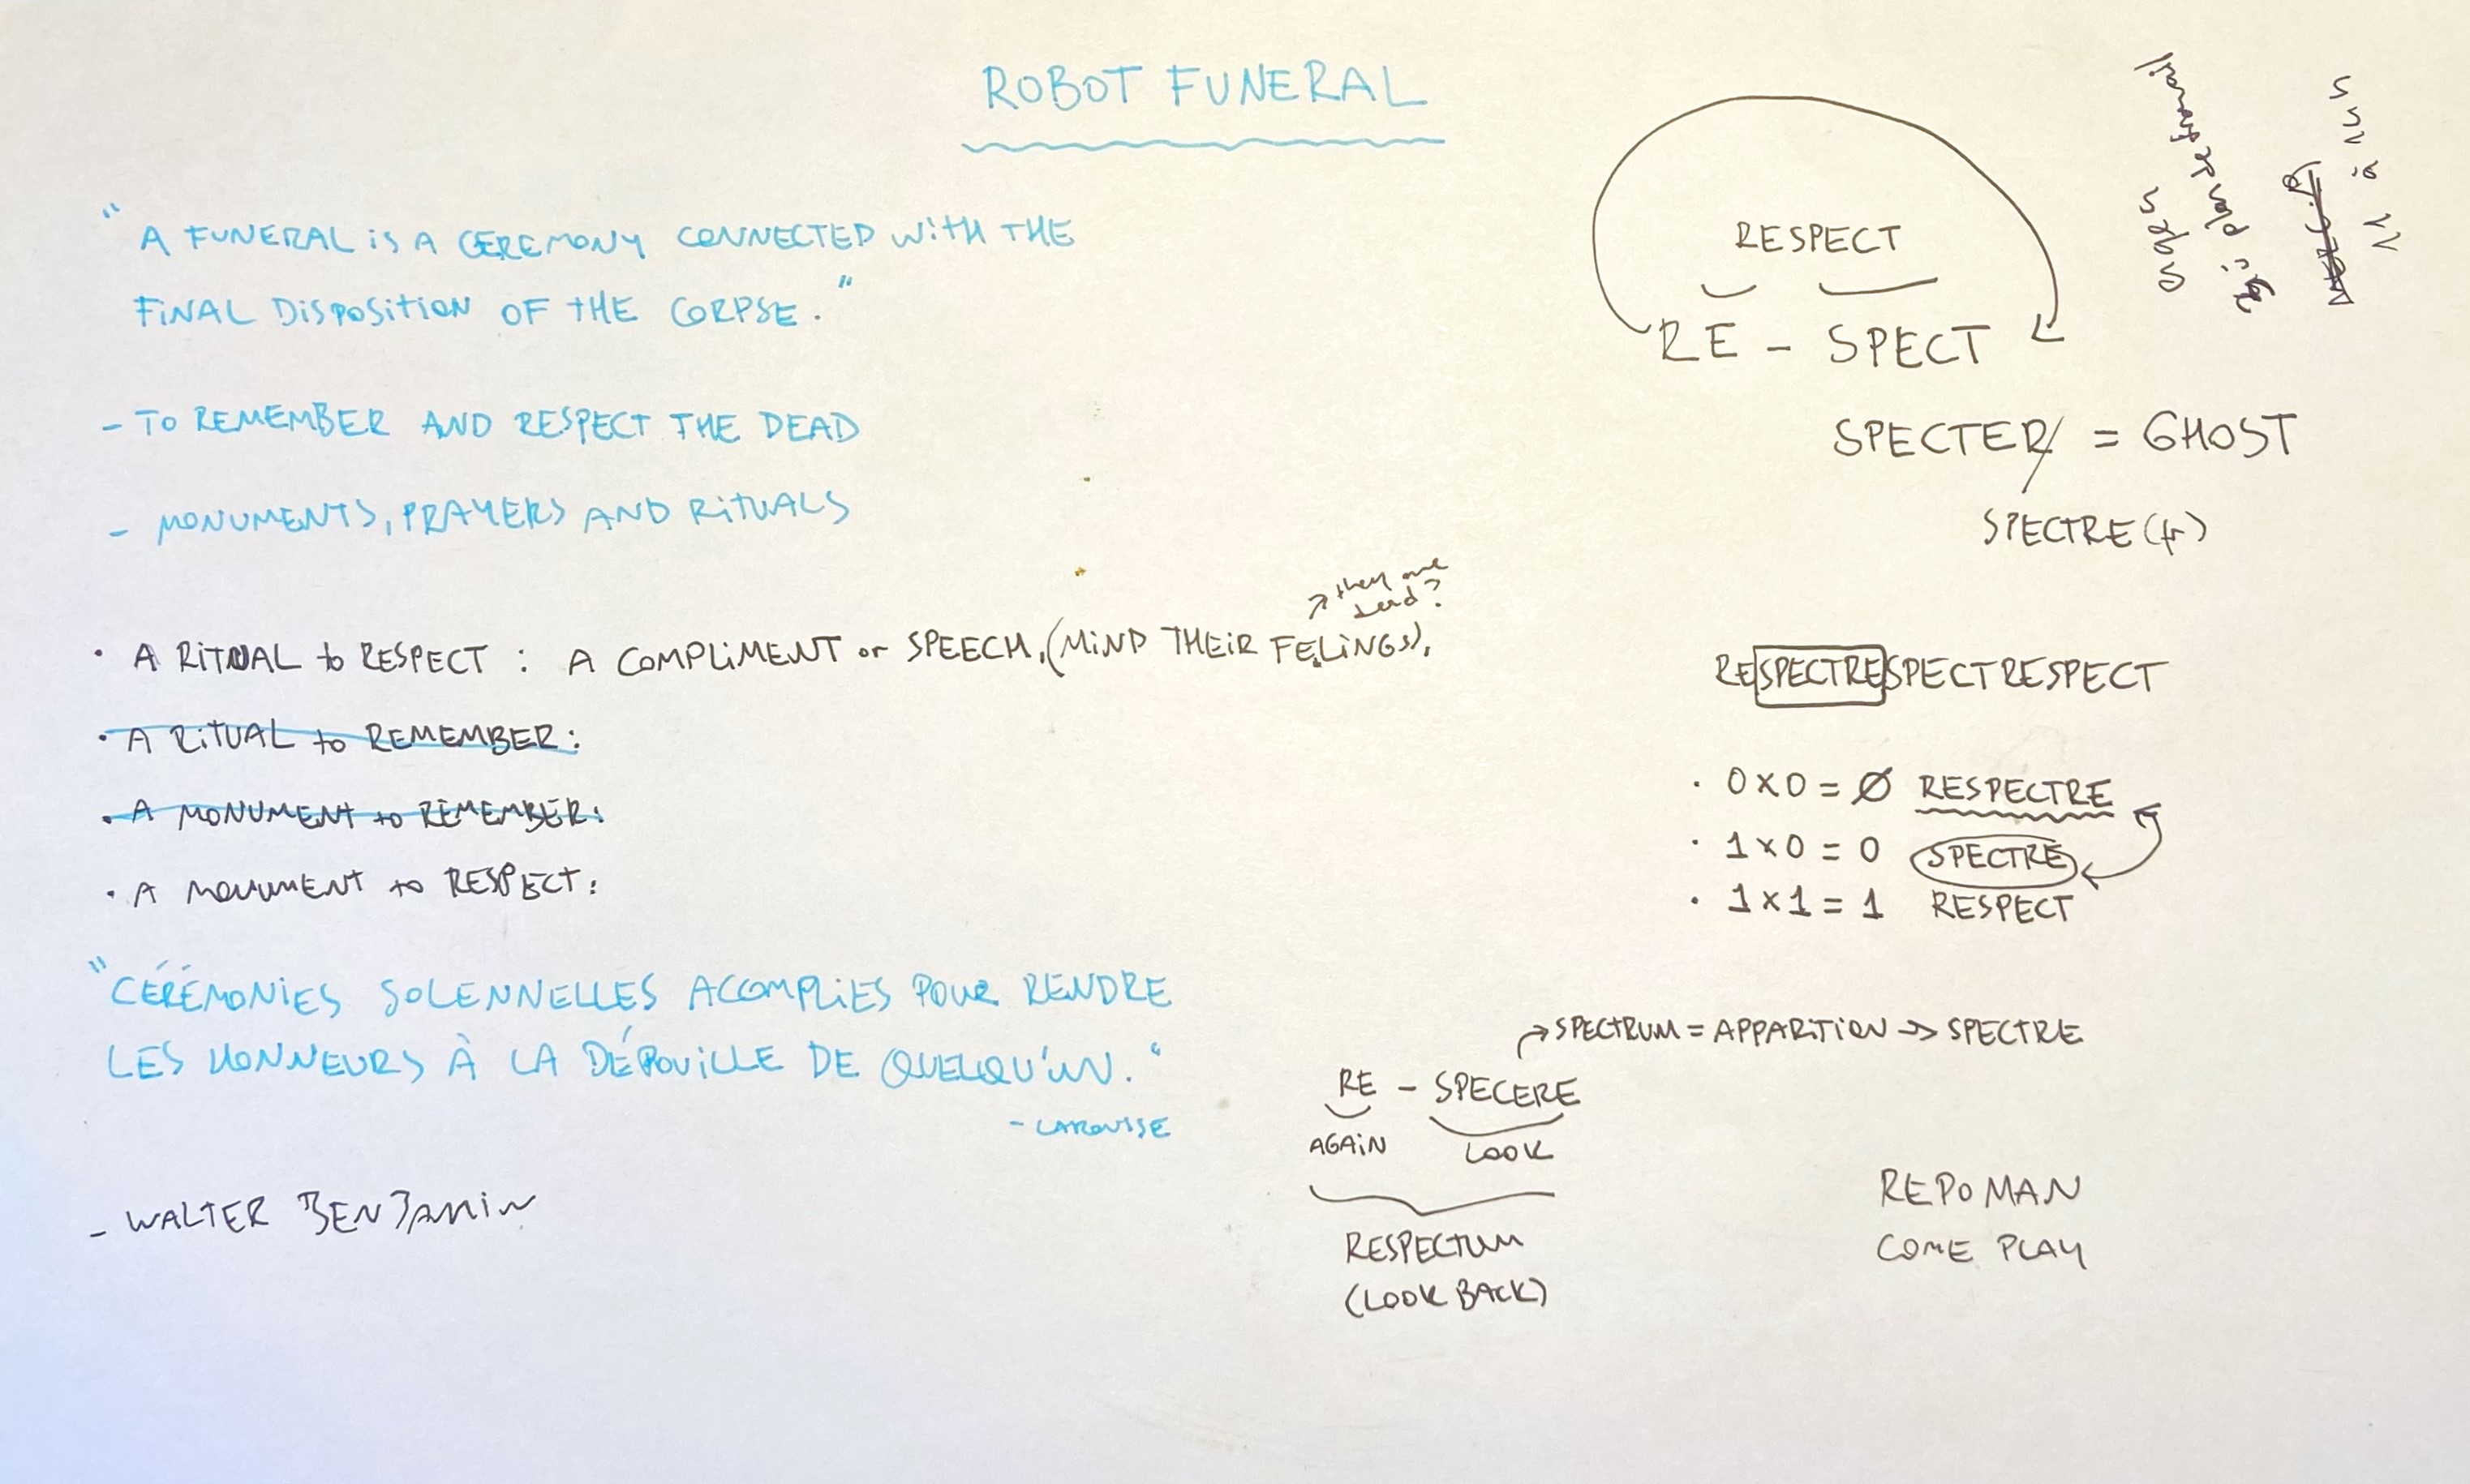 ROBOT FUNERAL
" A FUNERAL is A CEREMONY CONNECTED WITH THE
FINAL DISPOSITION OF THE CORPSE. "
- TO REMEMBER AND RESPECT THE DEAD
- MONUMENTS, PRAYERS AND RITUALS
they are
dead?
• A RITUAL to RESPECT : A COMPLIMENT or SPEECH, (MIND THEIR FELINGS),
• A RITUAL to REMEMBER :
• A MONUMENT to REMEMBER :
• A MONUMENT to RESPECT :
"CÉRÉMONIES SOLENNELLES ACOMPLIES POUR RENDRE
LES HONNEURS À LA DÉPOUILLE DE QUELQU'UN. "
- LAROUSSE
- WALTER BENJAMIN
RESPECT
RE - SPECT
SPECTER = GHOST
SPECTRE (fr)
RESPECTRESPECTRESPECT
• 0 x 0 = Ø RESPECTRE
• 1 x 0 = 0 SPECTRE
• 1 x 1 = 1 RESPECT
→ SPECTRUM = APPARITION → SPECTRE
RE - SPECERE
AGAIN LOOK
RESPECTUM
(LOOK BACK)
REPO MAN
COME PLAY